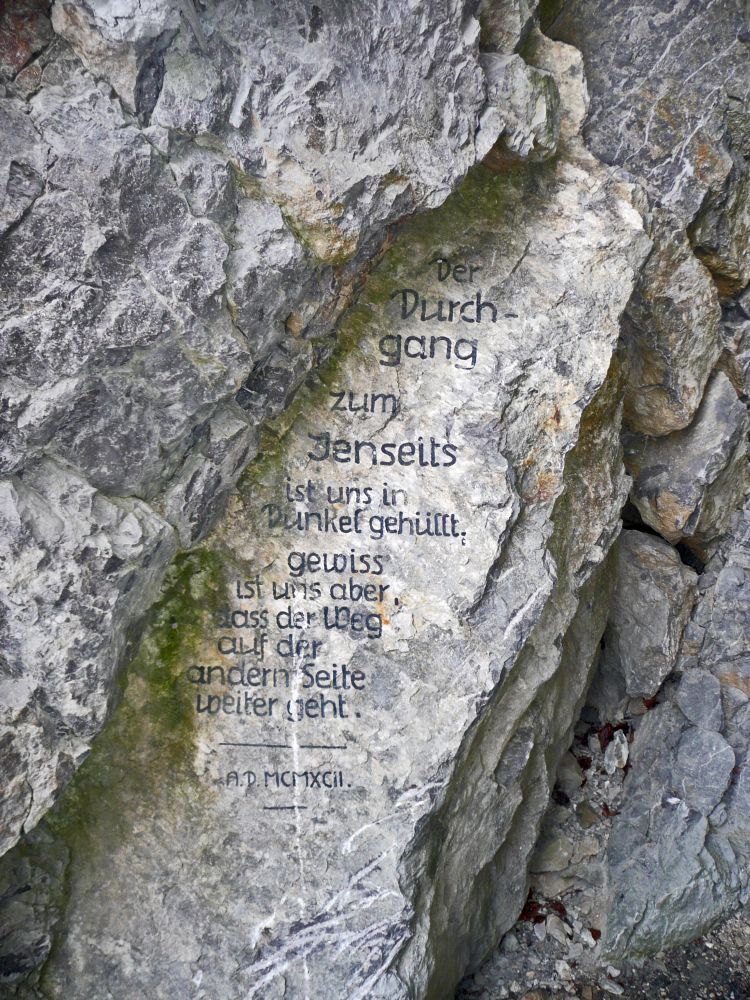 Der
Durch-
gang
zum
Jenseits
ist uns in
Dunkel gehüllt;
gewiss
ist uns aber,
dass der Weg
auf der
andern Seite
weiter geht.
A.D. MCMXCII.